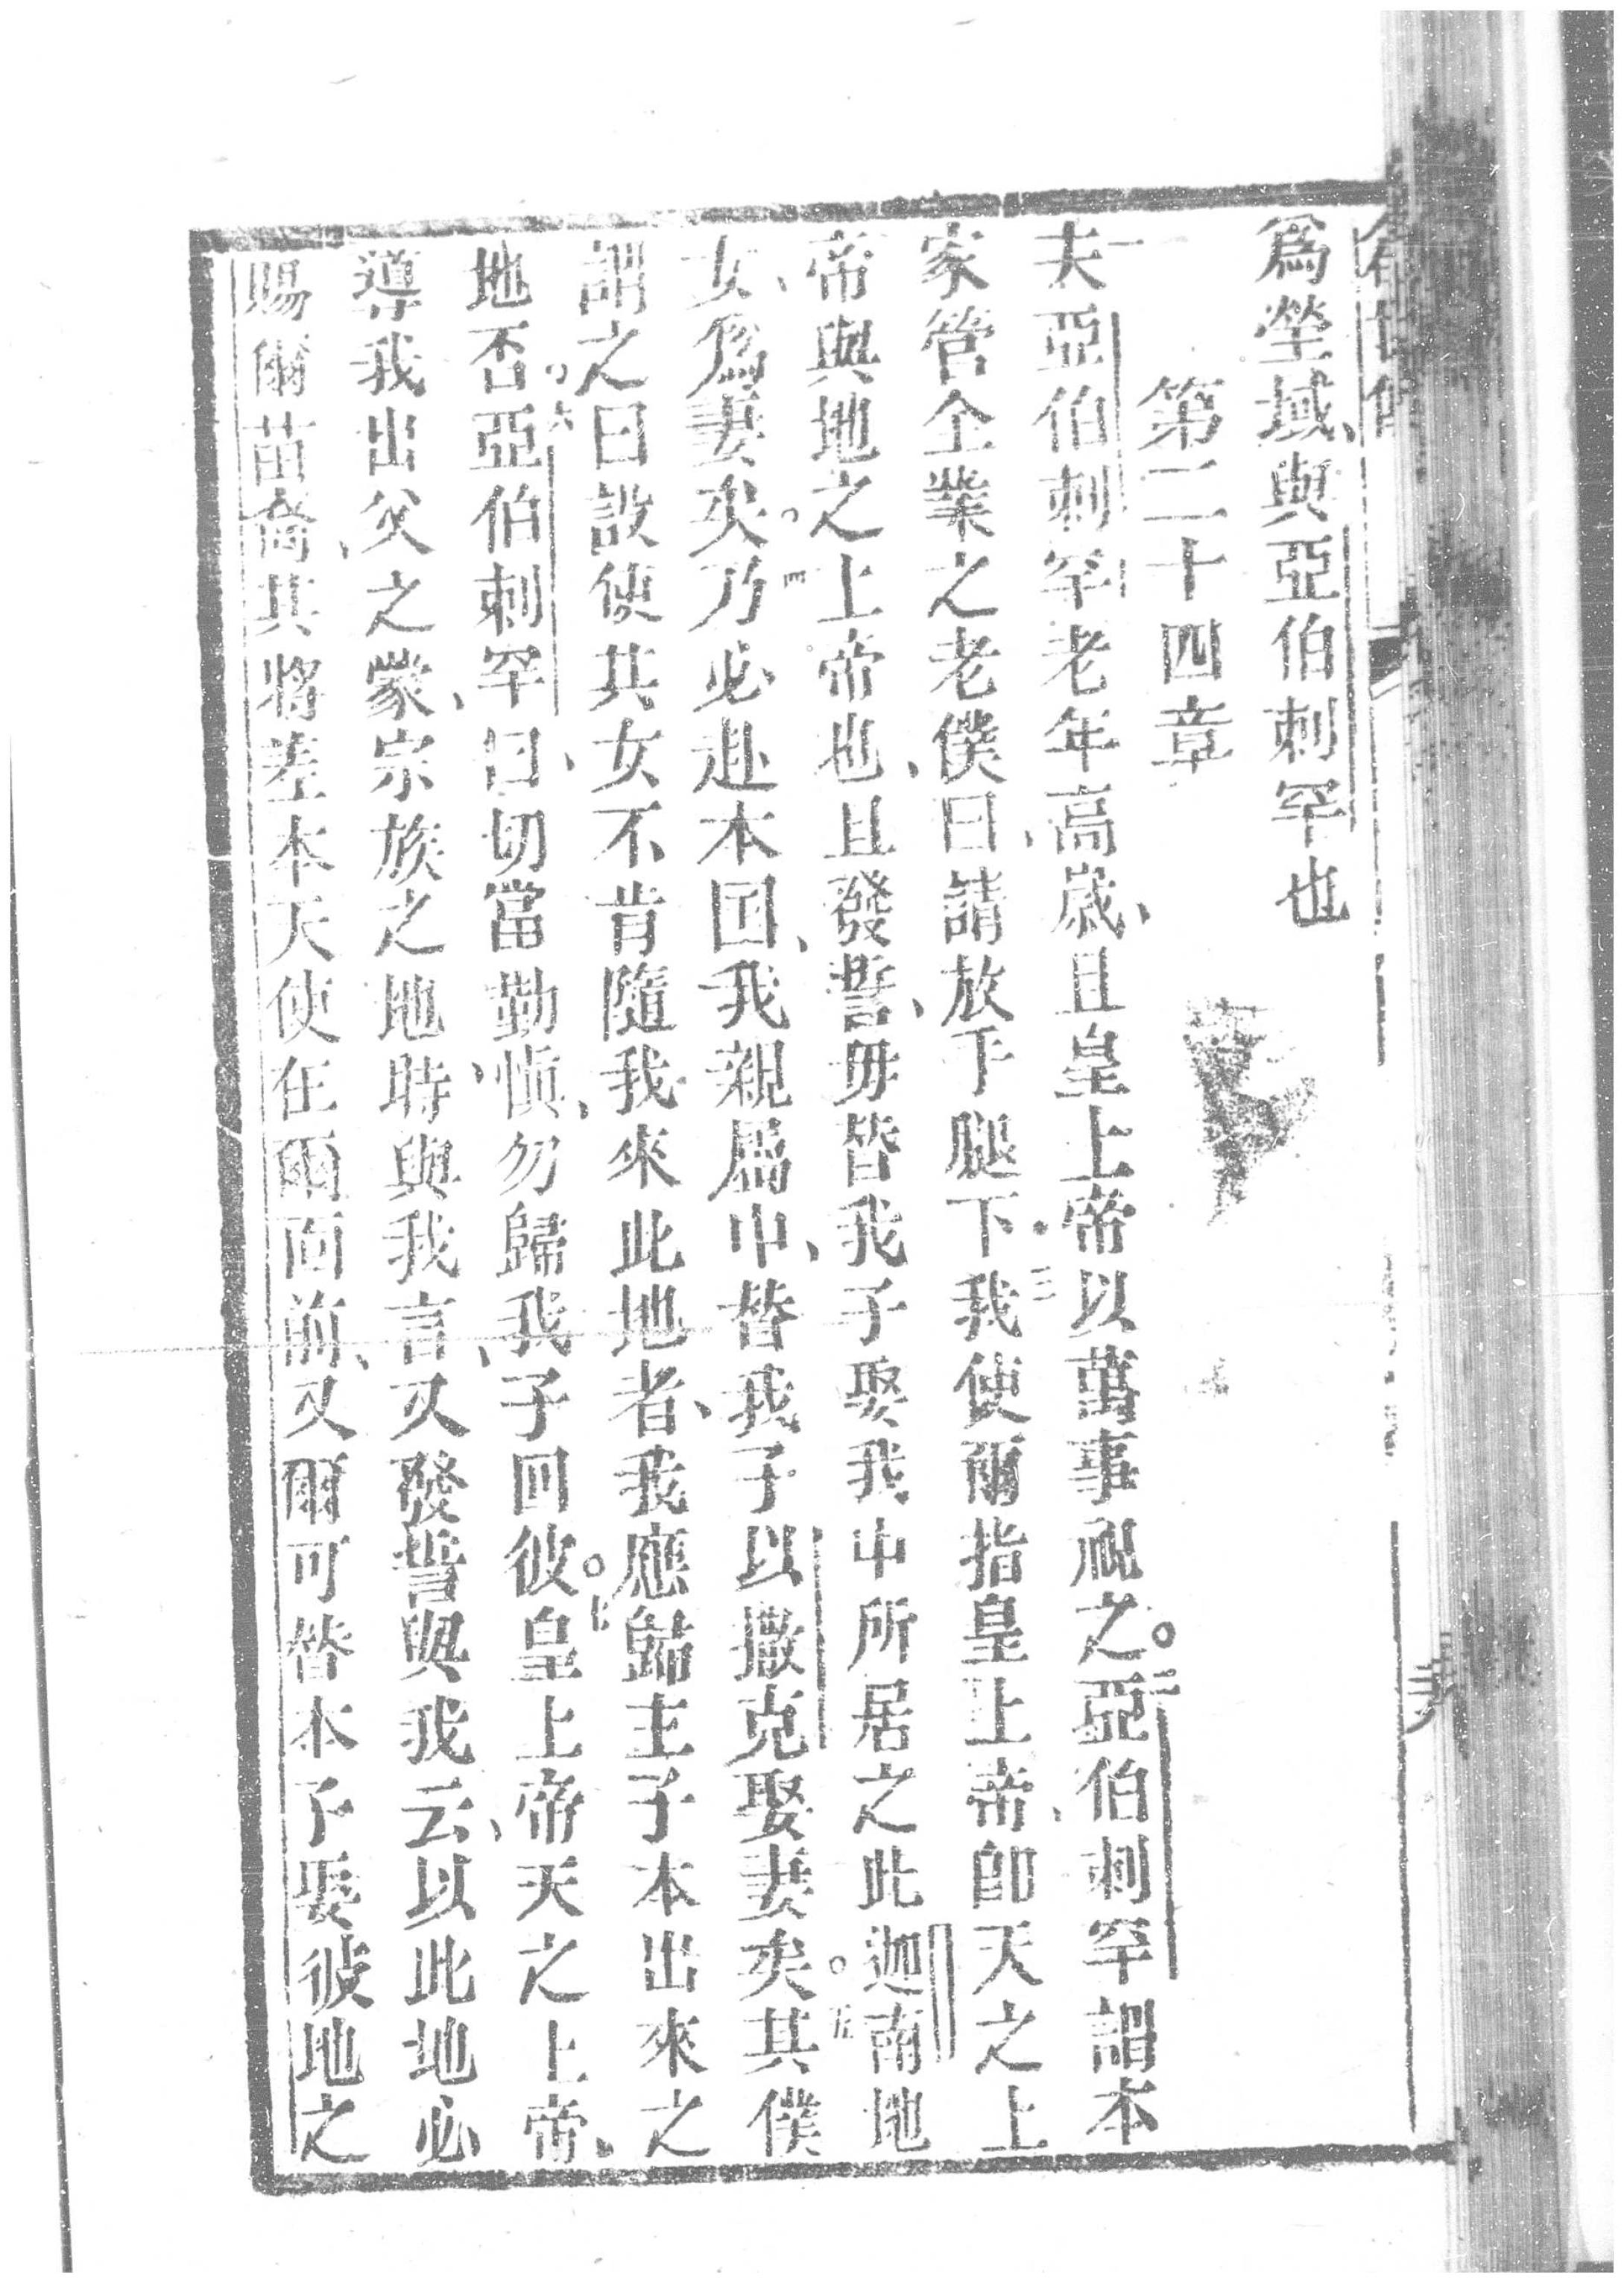 為塋域、與亞伯刺罕也
第二十四章
一夫亞伯刺罕老年高歲、且皇上帝以萬事祝之。二亞伯刺罕謂本
家管仝業之老僕曰、請放下腿下。三我使爾指皇上帝、即天之上
帝與地之上帝也、且發誓、毋替我子娶我中所居之此迦南地
女、為妻矣。四乃必赴本囯、我親屬中、替我子以撒克娶妻矣。五其僕
謂之曰設使其女不肯隨我來此地者、我應歸主子本出來之
地否。六亞伯刺罕曰、切當勤慎、勿歸我子回彼。七皇上帝天之上帝、
導我出父之家、宗族之地時、與我言、又發誓與我云、以此地必
賜爾苗裔、其將差本天使在爾面前、又爾可替本子娶彼地之